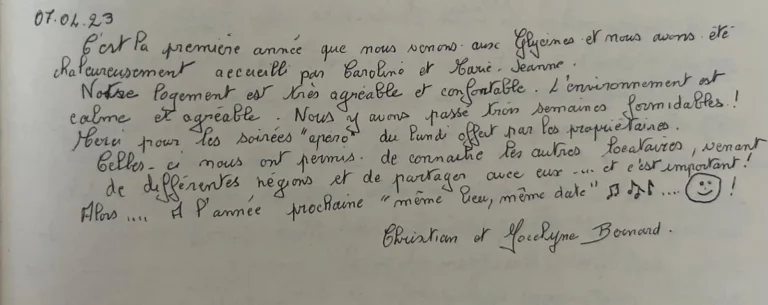 07.04.23
C'est la première année que nous venons aux Glycines et nous avons été
chaleureusement accueilli par Caroline et Marie-Jeanne.
Notre logement est très agréable et confortable. L'environnement est
calme et agréable. Nous y avons passé trois semaines formidables !
Merci pour les soirées "apéro" du lundi offert par les propriétaires.
Celles-ci nous ont permis de connaitre les autres locataires, venant
de différentes régions et de partager avec eux .... et c'est important !
Alors .... A l'année prochaine "même lieu, même date" ♫ ♫ ♪ .... ☺ !
Christian et Jocelyne Bernard.